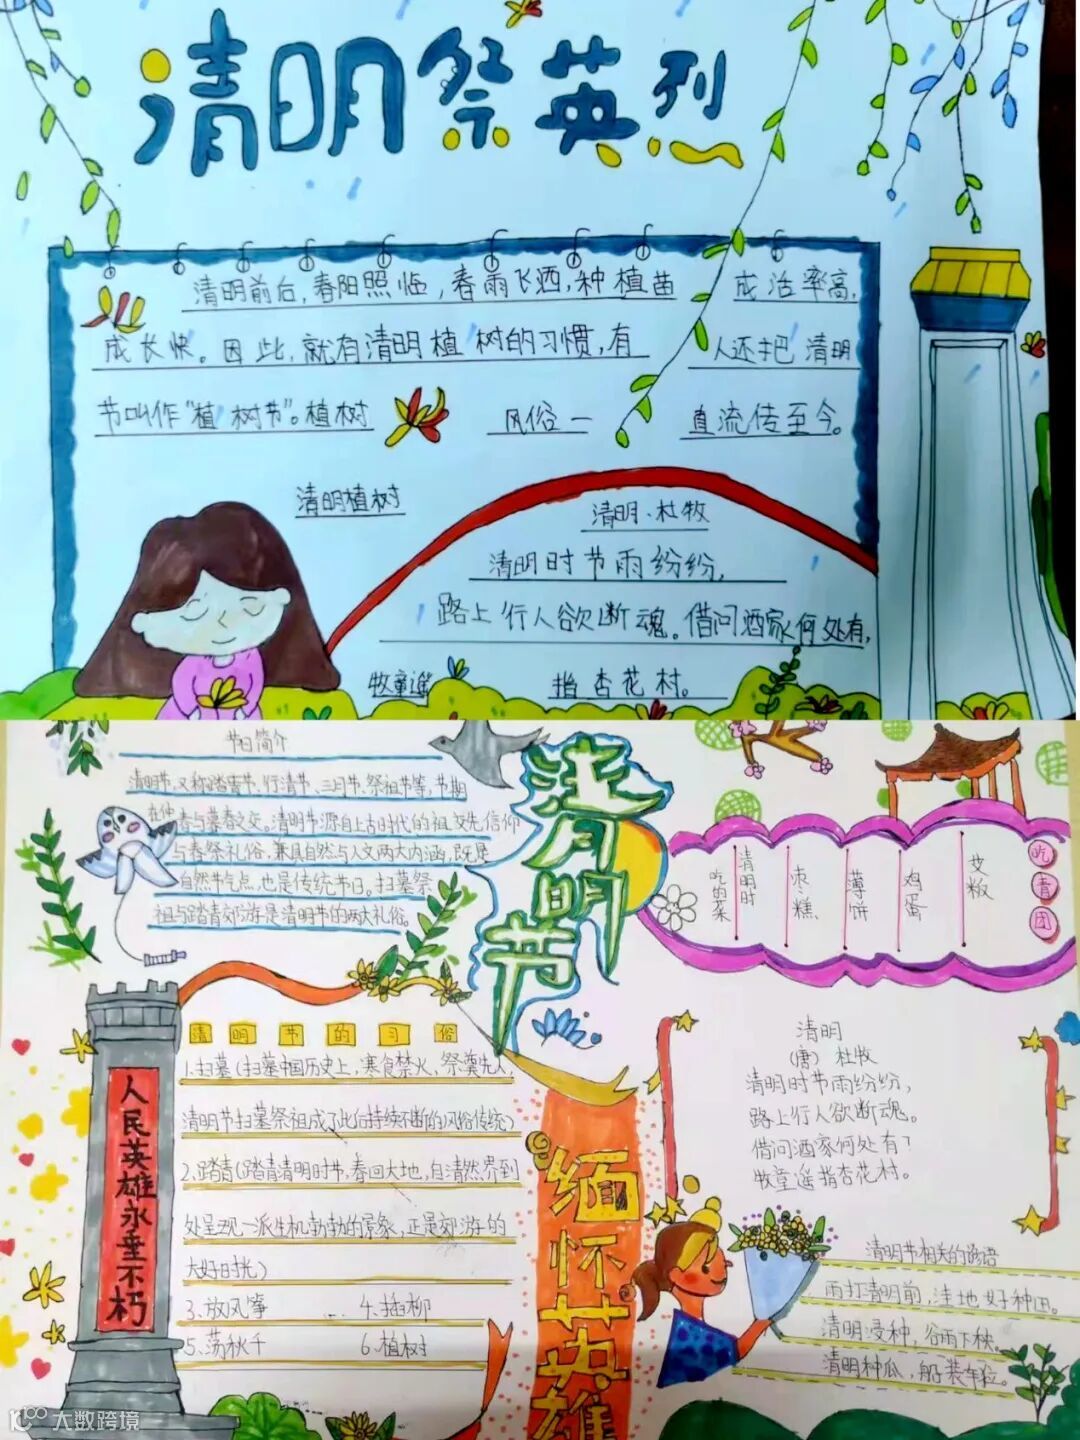 清明祭英烈
清明前后，春阳照临，春雨飞洒，种植苗 成活率高，
成长快。因此，就有清明植树的习惯，有 人还把清明
节叫作“植树节”。植树 风俗一 直流传至今。
清明植树
清明·杜牧
清明时节雨纷纷，
路上行人欲断魂。借问酒家何处有，
牧童遥 指杏花村。
节日简介
清明节，又称踏青节、行清节、三月节、祭祖节等，节期
在仲春与暮春之交。清明节源自上古时代的祖先信仰
与春祭礼俗，兼具自然与人文两大内涵，既是
自然节气点，也是传统节日。扫墓祭
祖与踏青郊游是清明节的两大礼俗。
清明节
吃青团
艾粄
鸡蛋
薄饼
枣糕
清明时
吃的菜
人民英雄永垂不朽
清明节的习俗
1.扫墓（扫墓中国历史上，寒食禁火，祭奠先人，
清明节扫墓祭祖成了此后持续不断的风俗传统）
2.踏青（踏青清明时节，春回大地，自清然界到
处呈现一派生机勃勃的景象，正是郊游的
大好时光）
3、放风筝 4、插柳
5、荡秋千 6、植树
缅怀英雄
清明
（唐）杜牧
清明时节雨纷纷，
路上行人欲断魂。
借问酒家何处有？
牧童遥指杏花村。
清明节相关的谚语
雨打清明前，洼地好种田。
清明浸种，谷雨下秧。
清明种瓜，船装车拉。
大数跨境